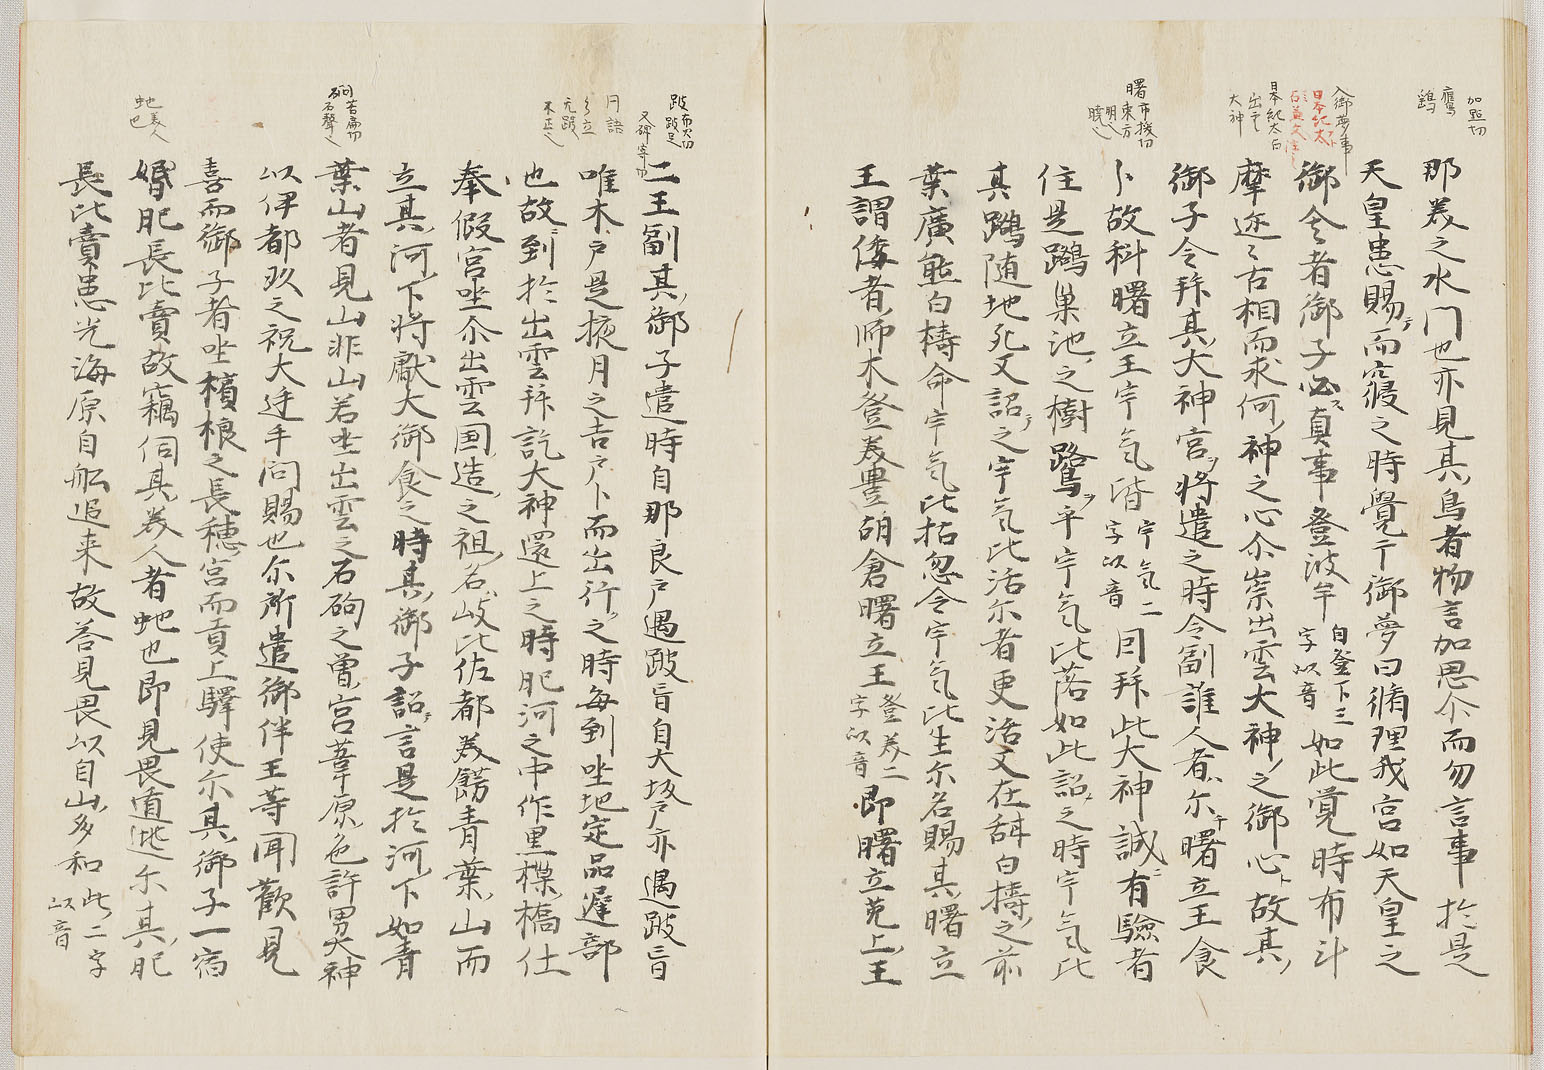 那美之水門也亦見其鳥者物言加思尒而勿言事於是
天皇患賜而寢之時覺于御夢曰脩理我宮如天皇之
御舍者御子必真事登波牟自登下三字以音如此覺時布斗
摩迩々占相而求何神之心尒祟出雲大神之御心故其
御子令拜其大神宮将遣之時令副誰人者尒曙立王食
卜故科曙立王宇氣淮宇氣二字以音因拜此大神誠有驗者
住是鷁巢池之樹鷺乎宇氣比落如此詔之時宇氣比
其鷁随地死又詔之宇氣比活尒者更活又在甜白檮之前
葉廣熊白檮令宇氣比枯忽令宇氣比生尒名賜其曙立
王謂倭者師木登美豊朝倉曙立王登美二字以音即曙立菟上王
二王副其御子遣時自那良戸遇跛盲自大坂戸亦遇跛盲
唯木戸是掖月之吉戸卜而出行之時每到坐地定品遅部
也故到於出雲拜訖大神還上之時肥河之中作黒樔橋仕
奉假宮坐尒出雲国造之祖名岐比佐都美餝青葉山而
立其河下将獻大御食之時其御子詔言是於河下如青
葉山者見山非山若坐出雲之石硐之曽宮葦原色許男大神
以伊都玖之祝大廷乎問賜也尒所遣御伴王等聞歡見
喜而御子者坐檳榔之長穗宮而貢上驛使尒其御子一宿
婚肥長比賣故竊伺其美人者虵也即見畏遁逃尒其肥
長比賣患光海原自舩追来故益見畏以自山多和此二字以音